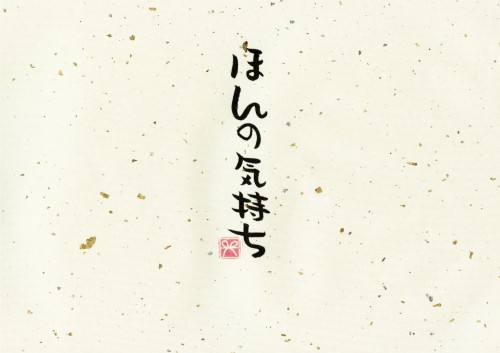 ほんの気持ち